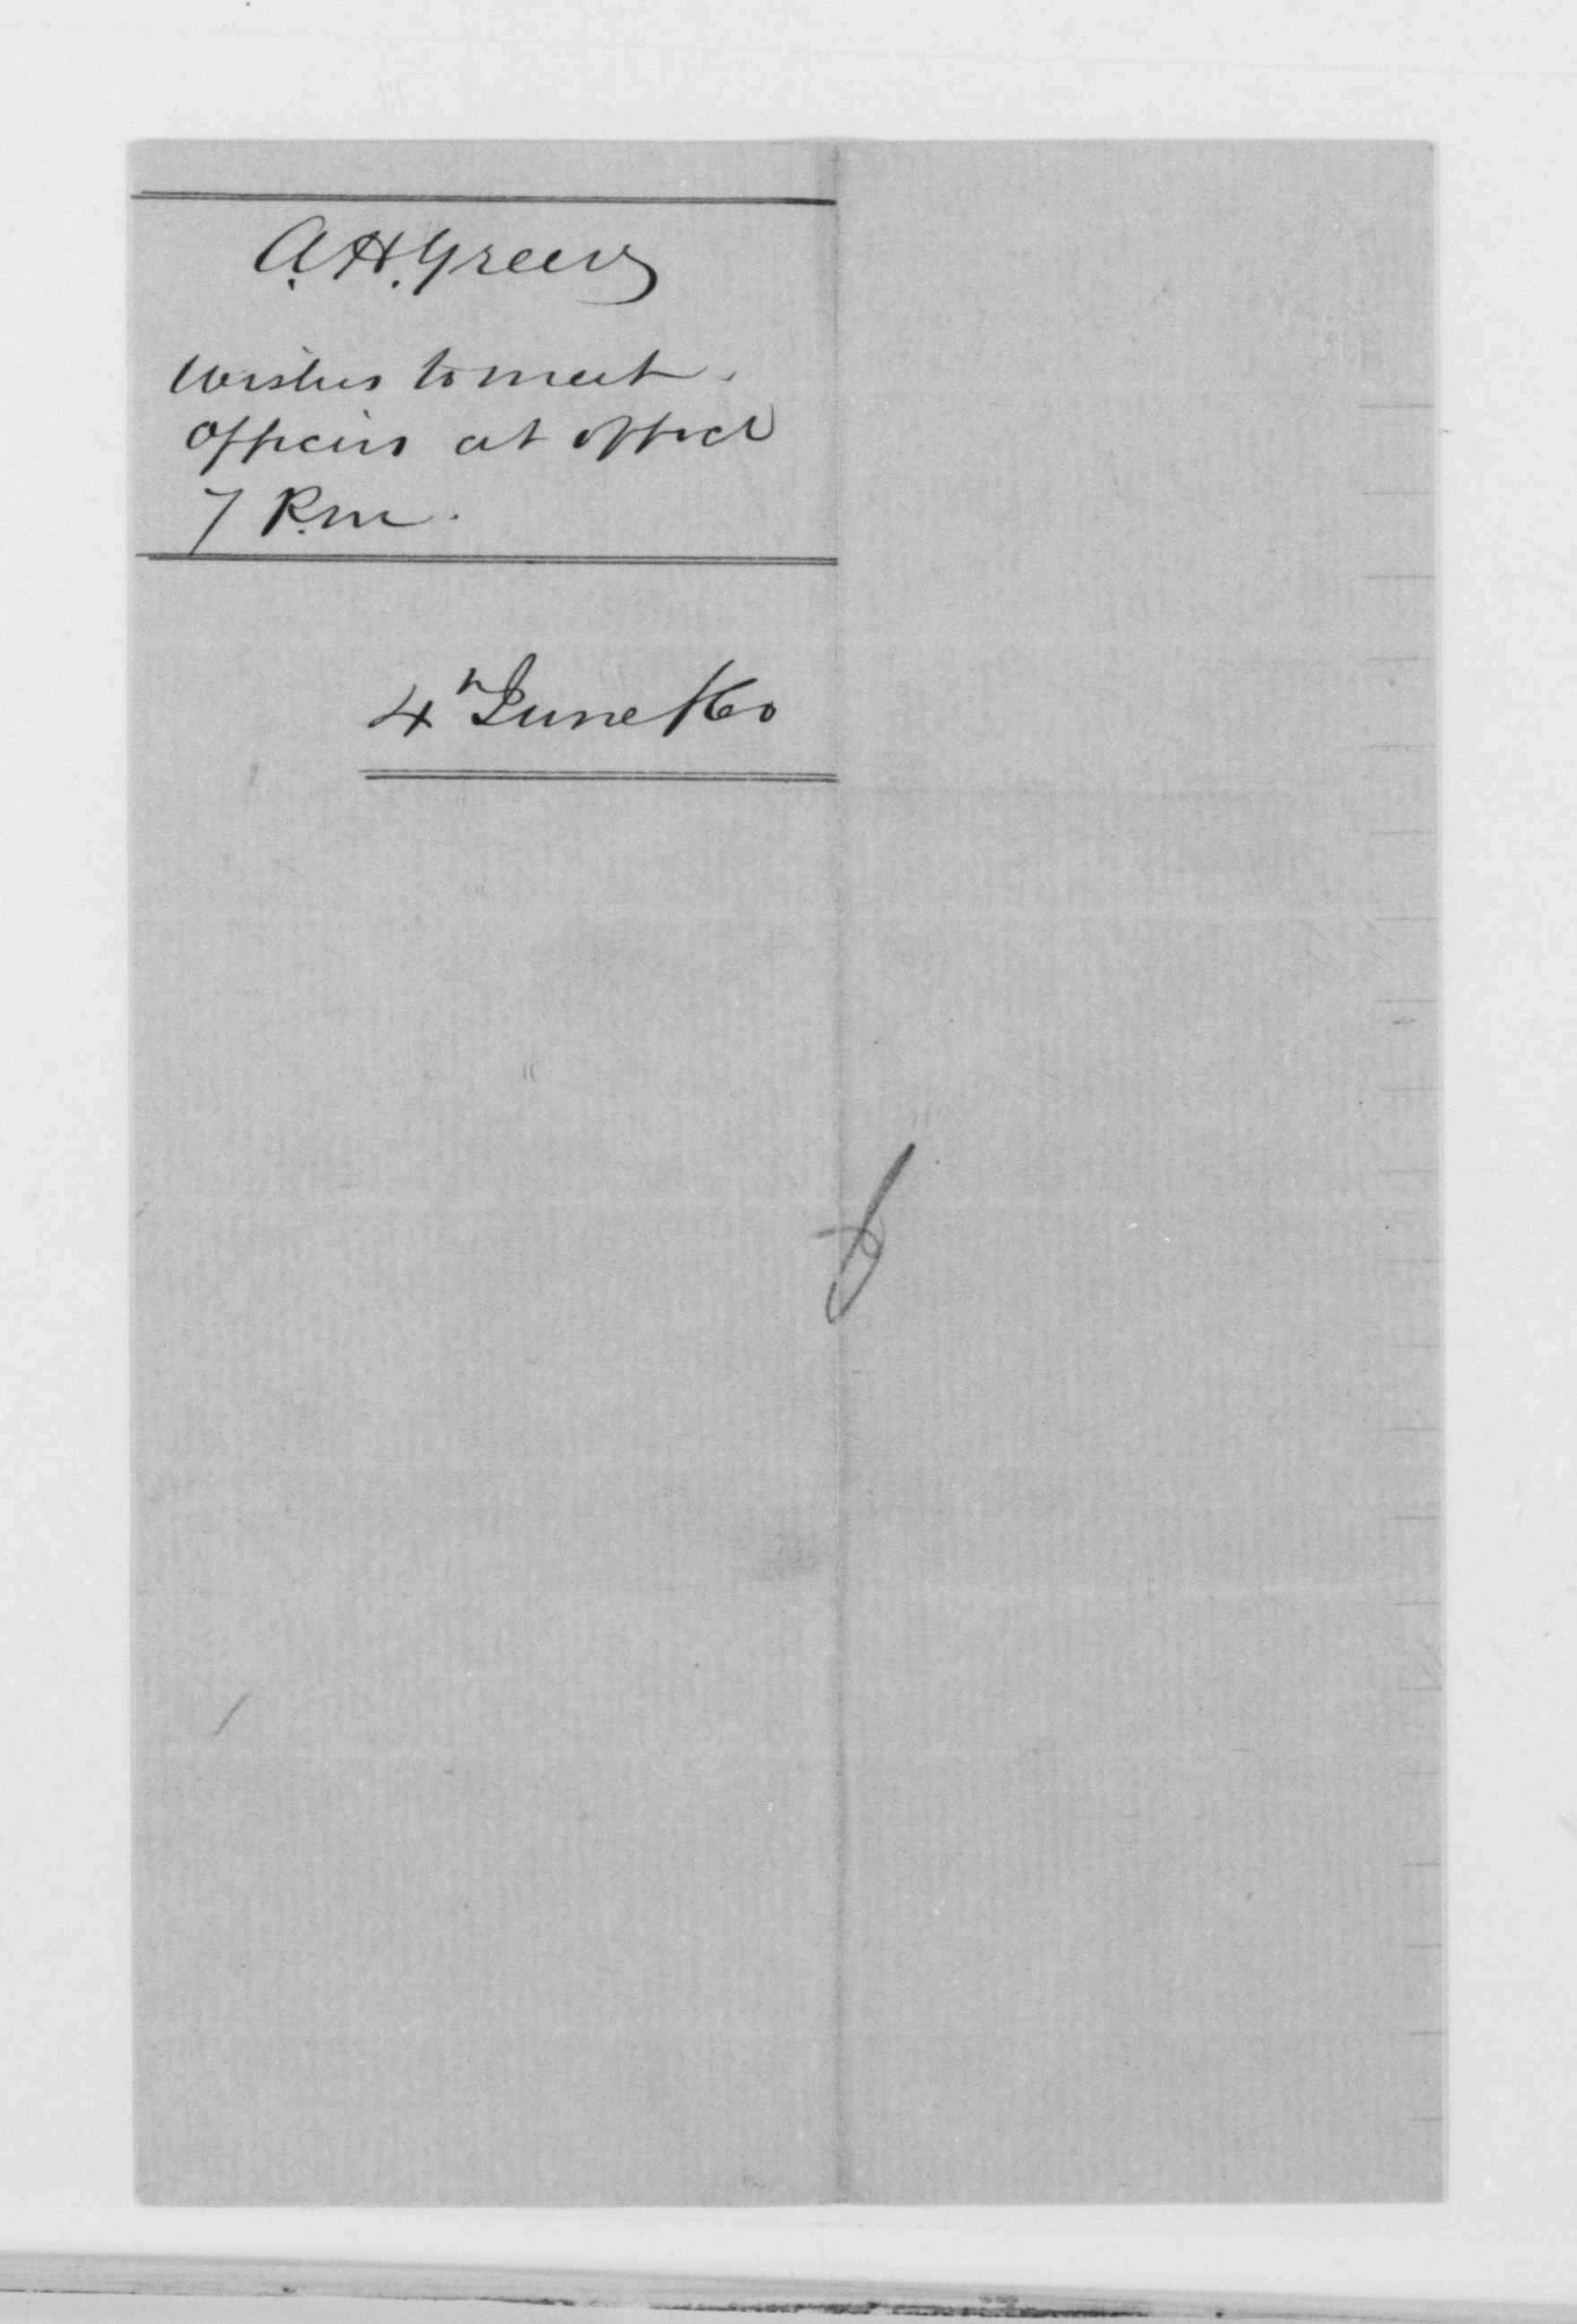 A. H. Green
Wishes to meet
Officers at office
7 P.m.
4h June /60